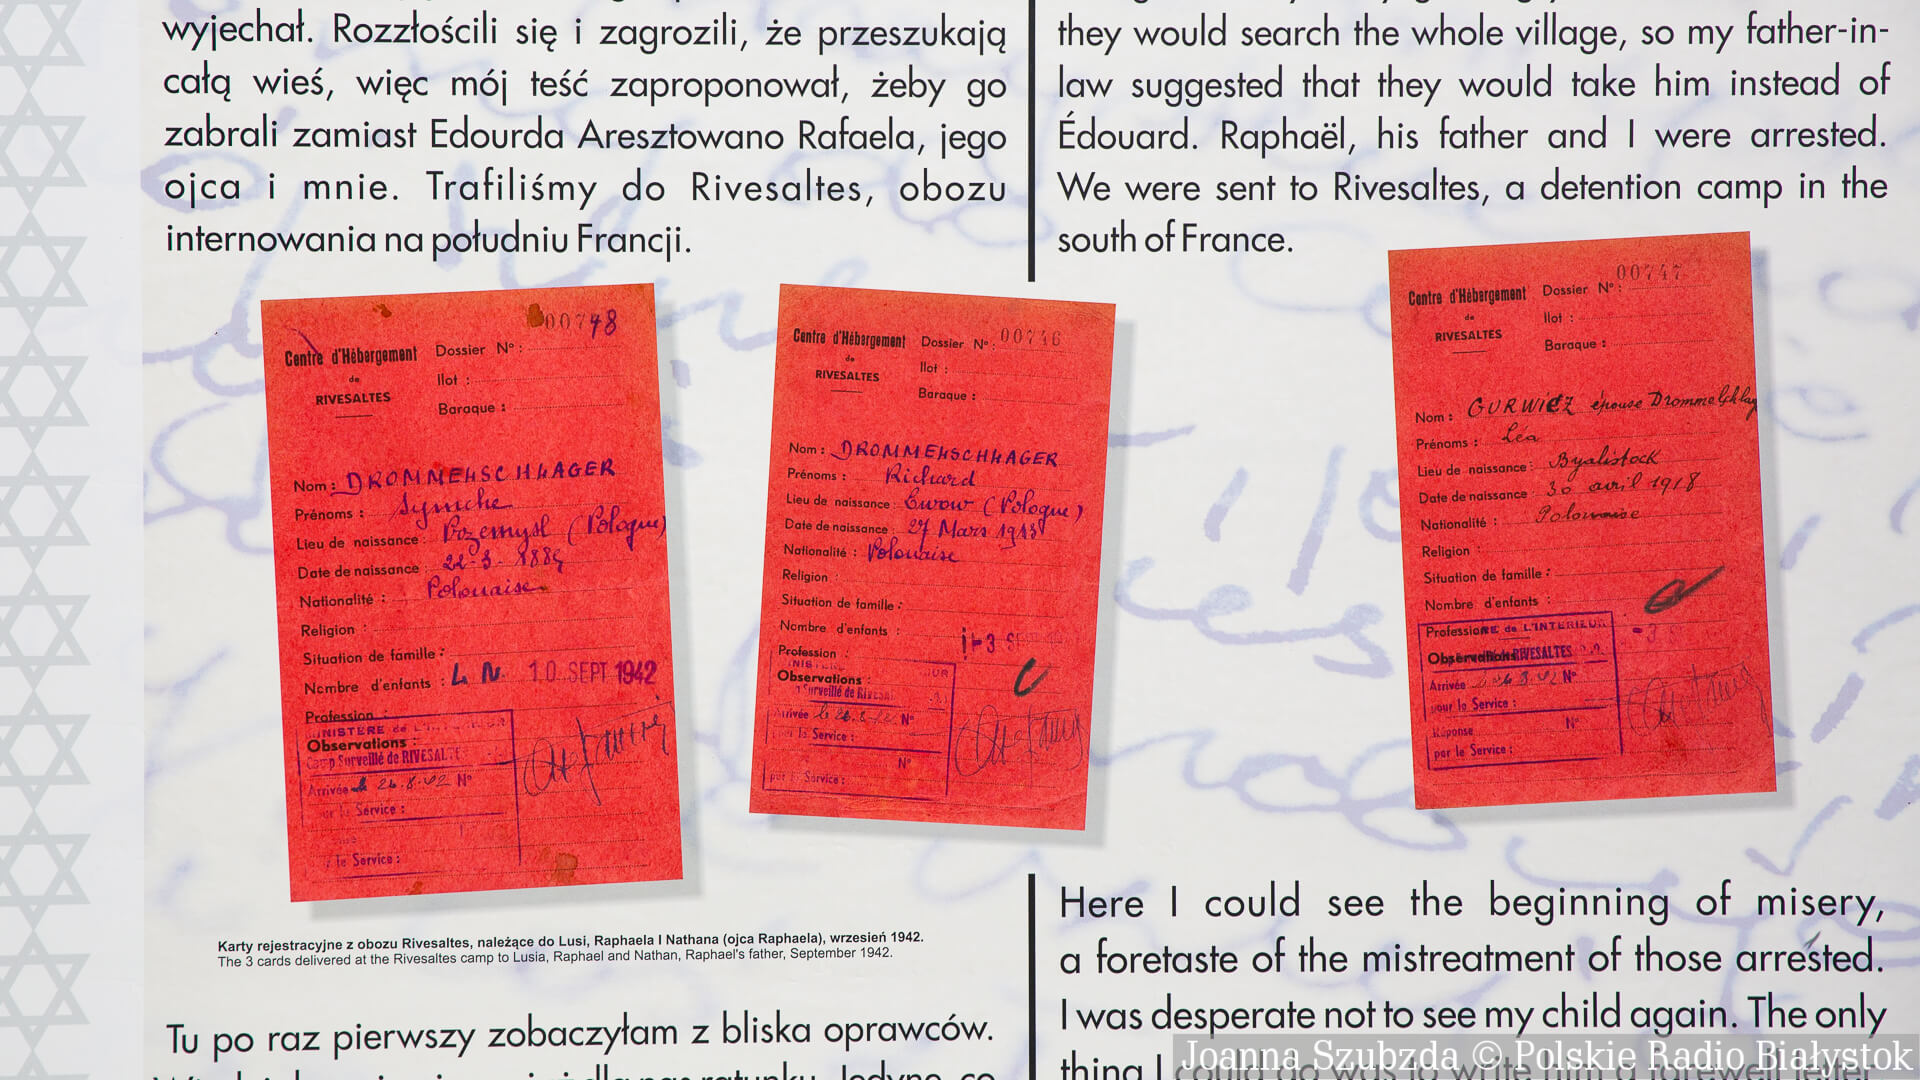 wyjechał. Rozzłościli się i zagrozili, że przeszukają
całą wieś, więc mój teść zaproponował, żeby go
zabrali zamiast Edourda Aresztowano Rafaela, jego
ojca i mnie. Trafiliśmy do Rivesaltes, obozu
internowania na południu Francji.
they would search the whole village, so my father-in-
law suggested that they would take him instead of
Édouard. Raphaël, his father and I were arrested.
We were sent to Rivesaltes, a detention camp in the
south of France.
00748
Centre d'Hébergement
de
RIVESALTES
Dossier Nº :
Ilot :
Baraque :
Nom : DROMMELSCHLAGER
Prénoms : Symche
Lieu de naissance : Przemysl (Pologne)
Date de naissance : 22-3-1885
Nationalité : Polonaise
Religion :
Situation de famille :
Nombre d'enfants :
10 SEPT 1942
Profession
MINISTERE de L'INTERIEUR
Observations :
Camp Surveillé de RIVESALTES
Arrivée le 26.8.42 Nº
pour le Service :
le Service :
Centre d'Hébergement
de
RIVESALTES
Dossier Nº : 00746
Ilot :
Baraque :
Nom : DROMMELSCHLAGER
Prénoms : Richard
Lieu de naissance : Lwow (Pologne)
Date de naissance : 27 Mars 1913
Nationalité : Polonaise
Religion :
Situation de famille :
Nombre d'enfants :
Profession :
Observations :
Surveillé de
Arrivée le 26.8.42 Nº
le Service :
Nº
par le Service :
00747
Centre d'Hébergement
de
RIVESALTES
Dossier Nº :
Ilot :
Baraque :
Nom : GURWICZ épouse Drommelschlag
Prénoms : Léa
Lieu de naissance : Byalistock
Date de naissance : 30 avril 1918
Nationalité : Polonaise
Religion :
Situation de famille :
Nombre d'enfants :
Profession
DE L'INTERIEUR
Observations RIVESALTES
Arrivée le 26.8.42 Nº
pour le Service :
Réponse Nº
par le Service :
Karty rejestracyjne z obozu Rivesaltes, należące do Lusi, Raphaela I Nathana (ojca Raphaela), wrzesień 1942.
The 3 cards delivered at the Rivesaltes camp to Lusia, Raphael and Nathan, Raphael's father, September 1942.
Tu po raz pierwszy zobaczyłam z bliska oprawców.
Here I could see the beginning of misery,
a foretaste of the mistreatment of those arrested.
I was desperate not to see my child again. The only
thing I could do was to write him a farewell letter
Joanna Szubzda © Polskie Radio Białystok